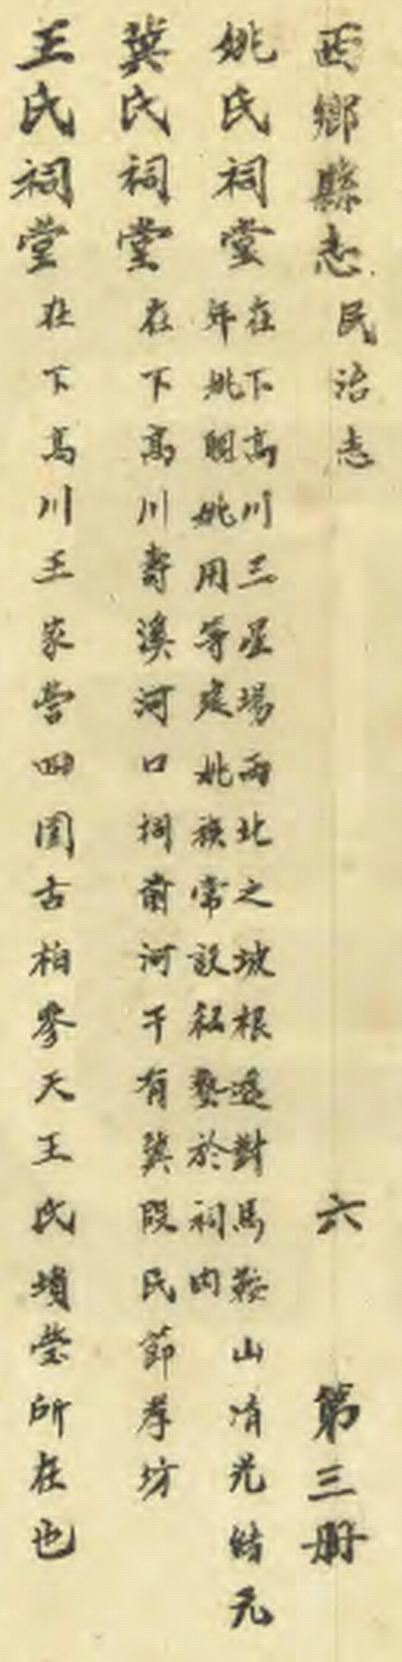 西鄉縣志 民治志 六 第三冊
姚氏祠堂 在下高川三星場西北之坡根遙對馬鞍山清光緒元
年姚聰姚用等建姚族常設私塾於祠內
龔氏祠堂 在下高川壽溪河口祠前河干有龔段氏節孝坊
王氏祠堂 在下高川王家營四圍古柏參天王氏墳塋所在也